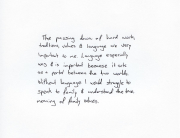 The passing down of hard work,
traditions, values & language are very
important to me. Language especially
was & is important because it acts
as a portal between the two worlds.
Without language I would struggle to
speak to family & understand the true
meaning of family values.